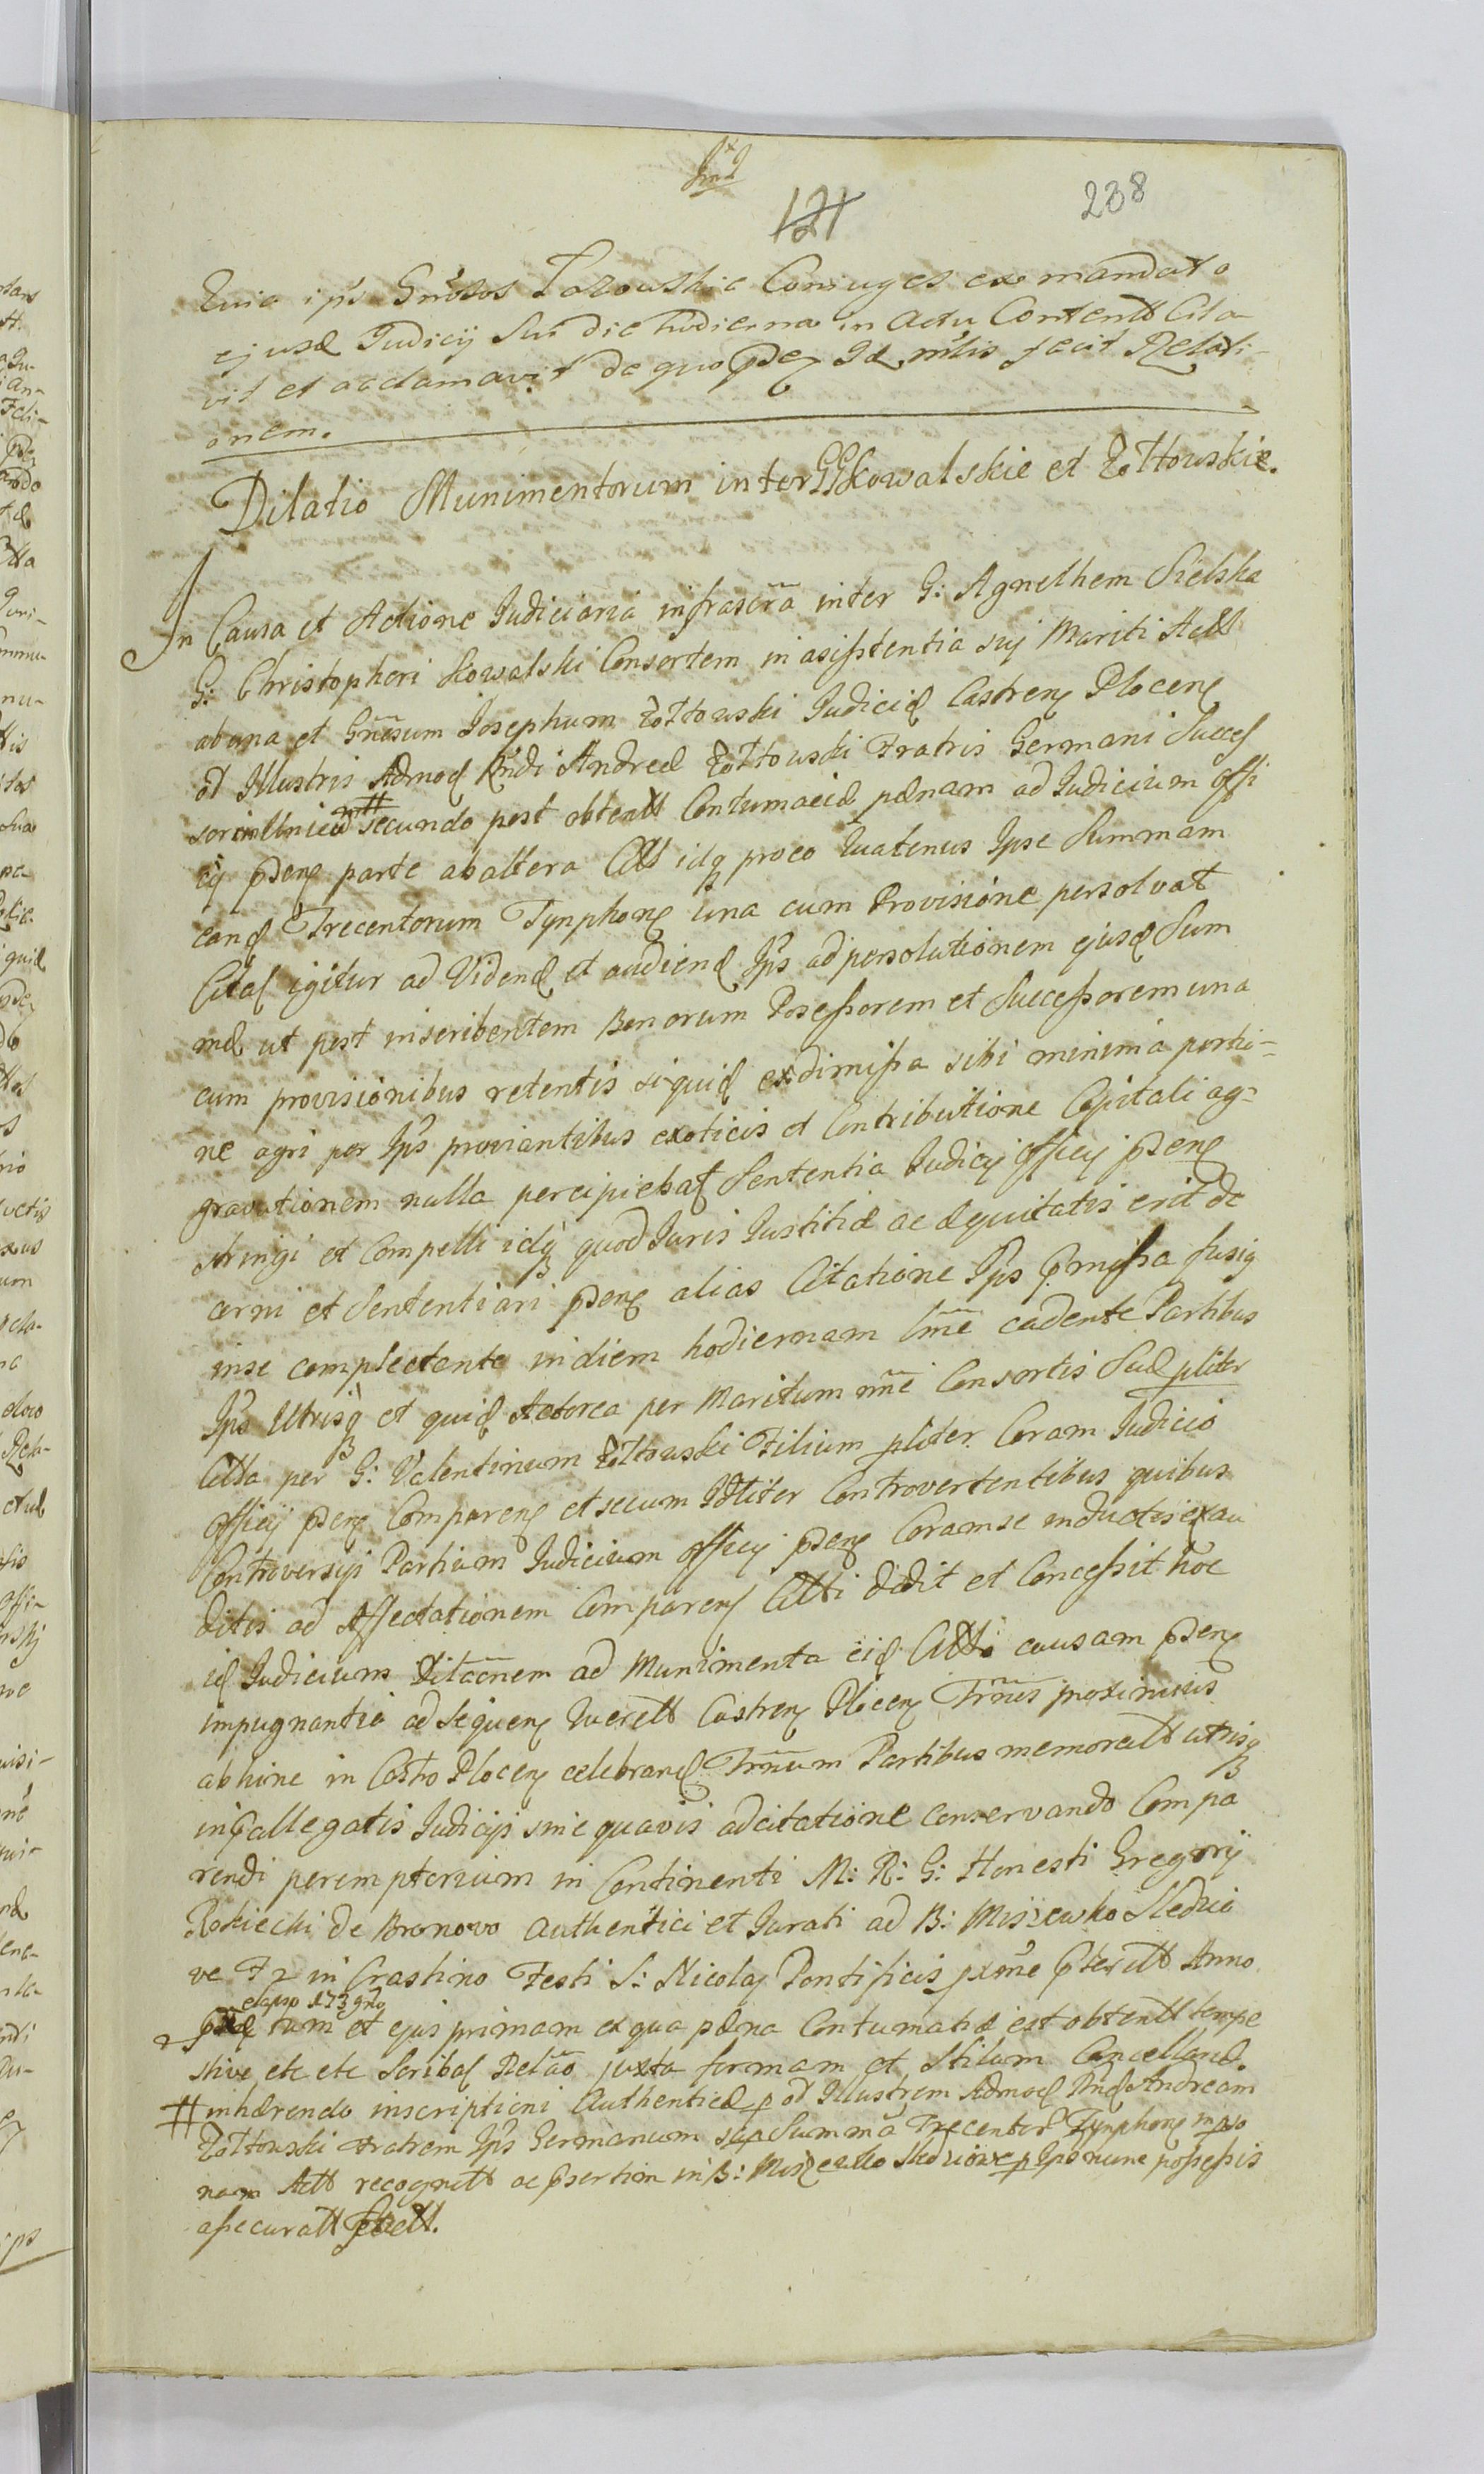 238
ipś Gnősos Łozowskie Coniuges ex mandato
ejusd Judicij Sui die hodierna in actu Contentt Cita
vit et acclamavit de quo pdeӡ Id mtis fecit Relati-
onem.
Dilatio Munimentorum inter GG Kowalskie et Żołtowskie.
In Causa et Actione Judiciaria infrascra inter G: Agnethem Sielska
G: Christopheri Kowalski Consortem in asistentia sui Mariti Act
ab una et Gnrsum Josephum Żołtowski Judicid Castren Plocen
ol Illustris Admod Rndi Andreæ Żołtowski Fratris Germani Succes
sorem Unicu # secundo post obtentt Contumaciæ pænam ad Judicium offi
cij pden parte ab altera Citt idq pro eo Quatenus Ipse Summam
eand Trecentorum Tynphon una cum Provisione persolvat
Citat igitur ad Videnđ et audienđ Ips ad persolutionem ejusd Sum
mæ ut post inscribentem Bonorum Posessorem et Successorem una
cum provisionibus retentis siquid ex dimissa sibi minima portio-
ne agri per Ips proviantibus exoticis et Contributione Capitali ag-
gravationem nulla percipiebat Sententia Judicij officij pden
stringi et Compelli idq quod Juris Justitiæ ac æquitatis erit de
cerni et Sententiari pden alias Citatione Ips pmissa fusiq
inse complectente in diem hodiernam lme cadente Partibus
Ips Utrisq et quid Actorea per Maritum nne Consortis Suæ pliter
Citta per G: Valentinum Żołtowski Filium pliter Coram Judicio
officij pden Comparen et secum Idliter Controvertentibus quibus
Controversijs Partium Judicium officij pden Coram se inductis exau
ditis ad Affectationem Comparen Citti dedit et Concessit hoc
id Judicium Dilacnem ad Munimenta eid Citti causam pden
impugnantia ad Sequen Querell Castren Plocen Trnis proximius
abhinc in Castro Plocen celebrand Trnum Partibus memoratt utrisq
in pallegatis Judicijs sine quavis adcitatione conservando Compa
rendi peremptorium in Continenti M: R: G: Honesti Gregorij
Rokiecki de Bronovo authentici et Jurati ad B: Misiewko Sledzio
ve F2 in Crastino Festi S: Nicolaj Pontificis pxme pteritt Anno
elapso 1739no
tum et ejus primam ex qua pæna Contumatiæ est obtentt tempe
stive etc etc Scribat Relao juxta formam et Stilum Cancellariæ.
# inhærendo inscriptioni authenticæ p ol Illustrem Admod Rnd Andream
Żołtowski Fratrem Ips Germanum sup Summa Trecentor Tynphon in pso
nam Actt recognitt ac psertim in B: Misiewko Sledziowe p Ips nunc possessis
assecuratt